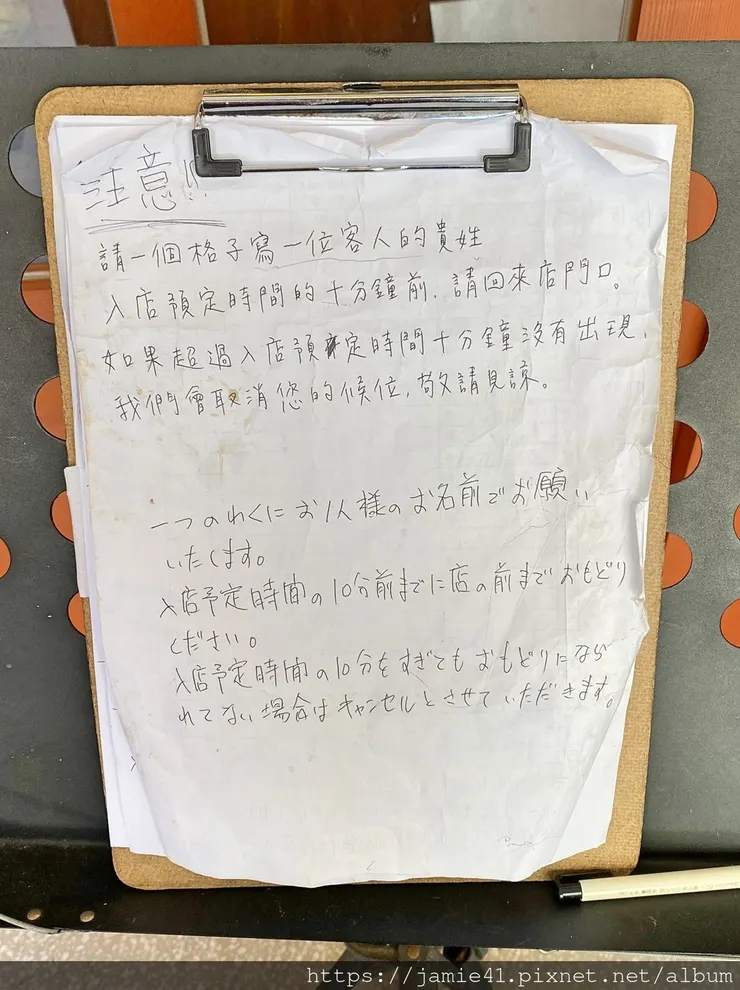 注意!!
請一個格子寫一位客人的貴姓
入店預定時間的十分鐘前,請回來店門口。
如果超過入店預定時間十分鐘沒有出現,
我們會取消您的候位,敬請見諒。
一つのわくにお1人様のお名前でお願い
いたします。
入店予定時間の10分前までに店の前までおもどり
ください。
入店予定時間の10分をすぎてもおもどりになら
れてない場合はキャンセルとさせていただきます。
https://jamie41.pixnet.net/album